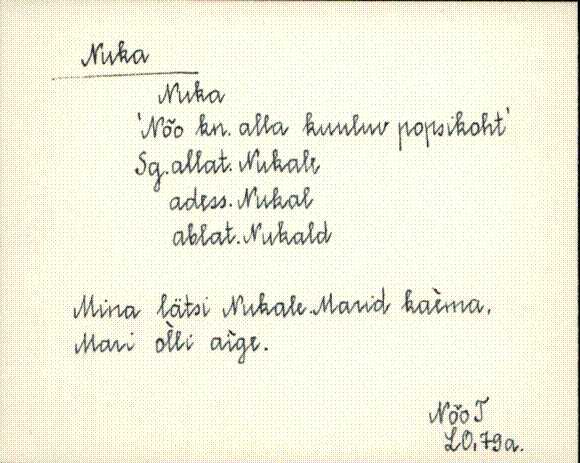 Nuka
Nuka
'Nõo kn. alla kuuluv popsikoht'
Sg. allat. Nukale
adess. Nukal
ablat. Nukald
Mina lätsi Nukale. Marid kaèma,
Mari òlli aìge.
Nõo T
LO, 79a.